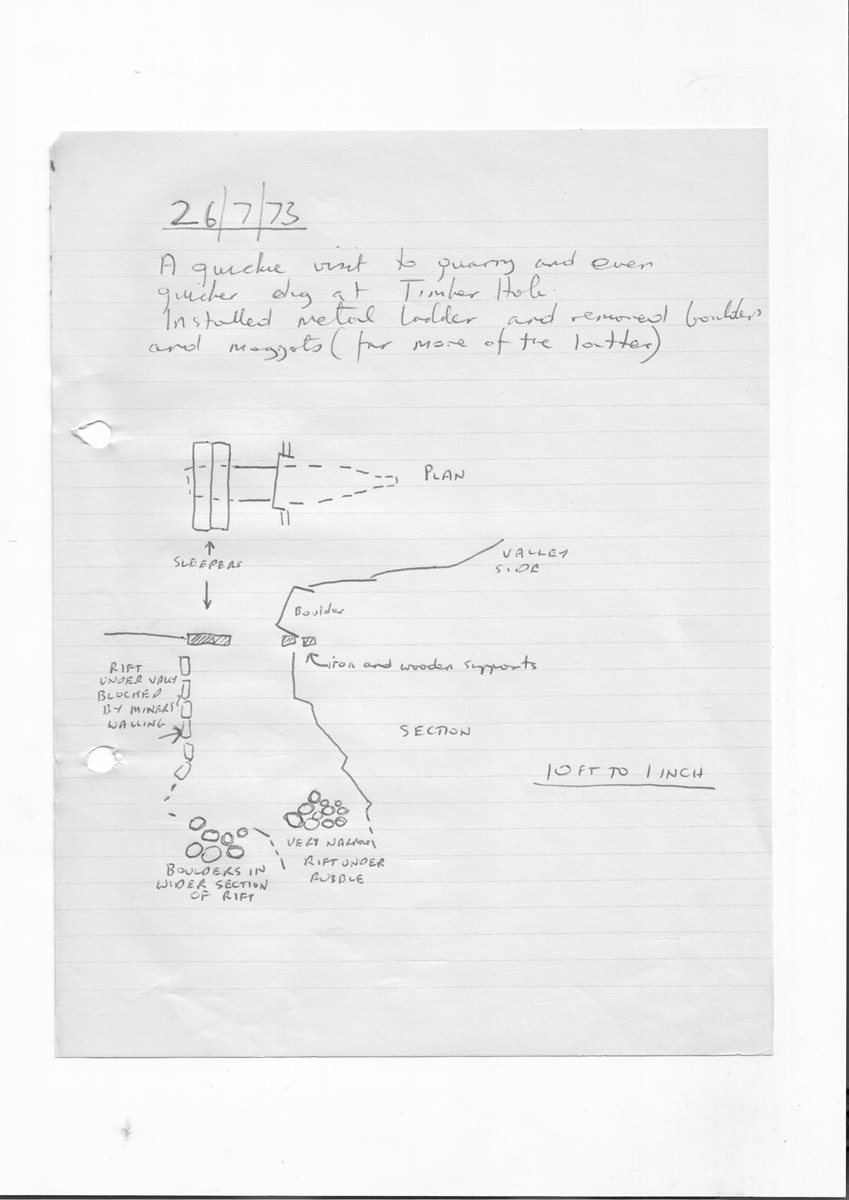 26/7/73
A quickie visit to quarry and even
quicker dig at Timber Hole.
Installed metal ladder and removed boulders
and maggots (far more of the latter)
PLAN
SLEEPERS
VALLEY
SIDE
Boulder
iron and wooden supports
RIFT
UNDER VALLY
BLOCKED
BY MINERS
WALLING
SECTION
10 FT TO 1 INCH
VERY NARROW
RIFT UNDER
RUBBLE
BOULDERS IN
WIDER SECTION
OF RIFT